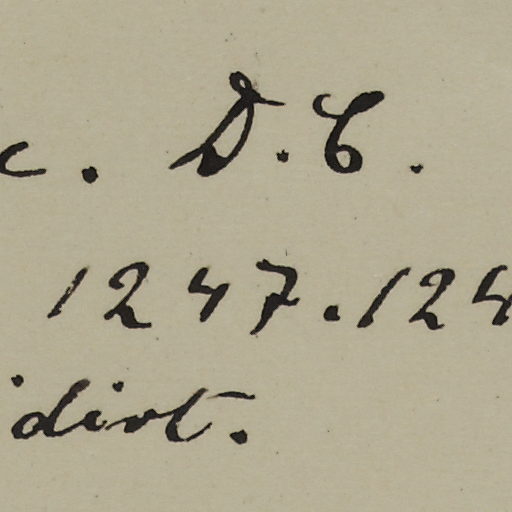 c. D. C.
1247. 124
idiot.